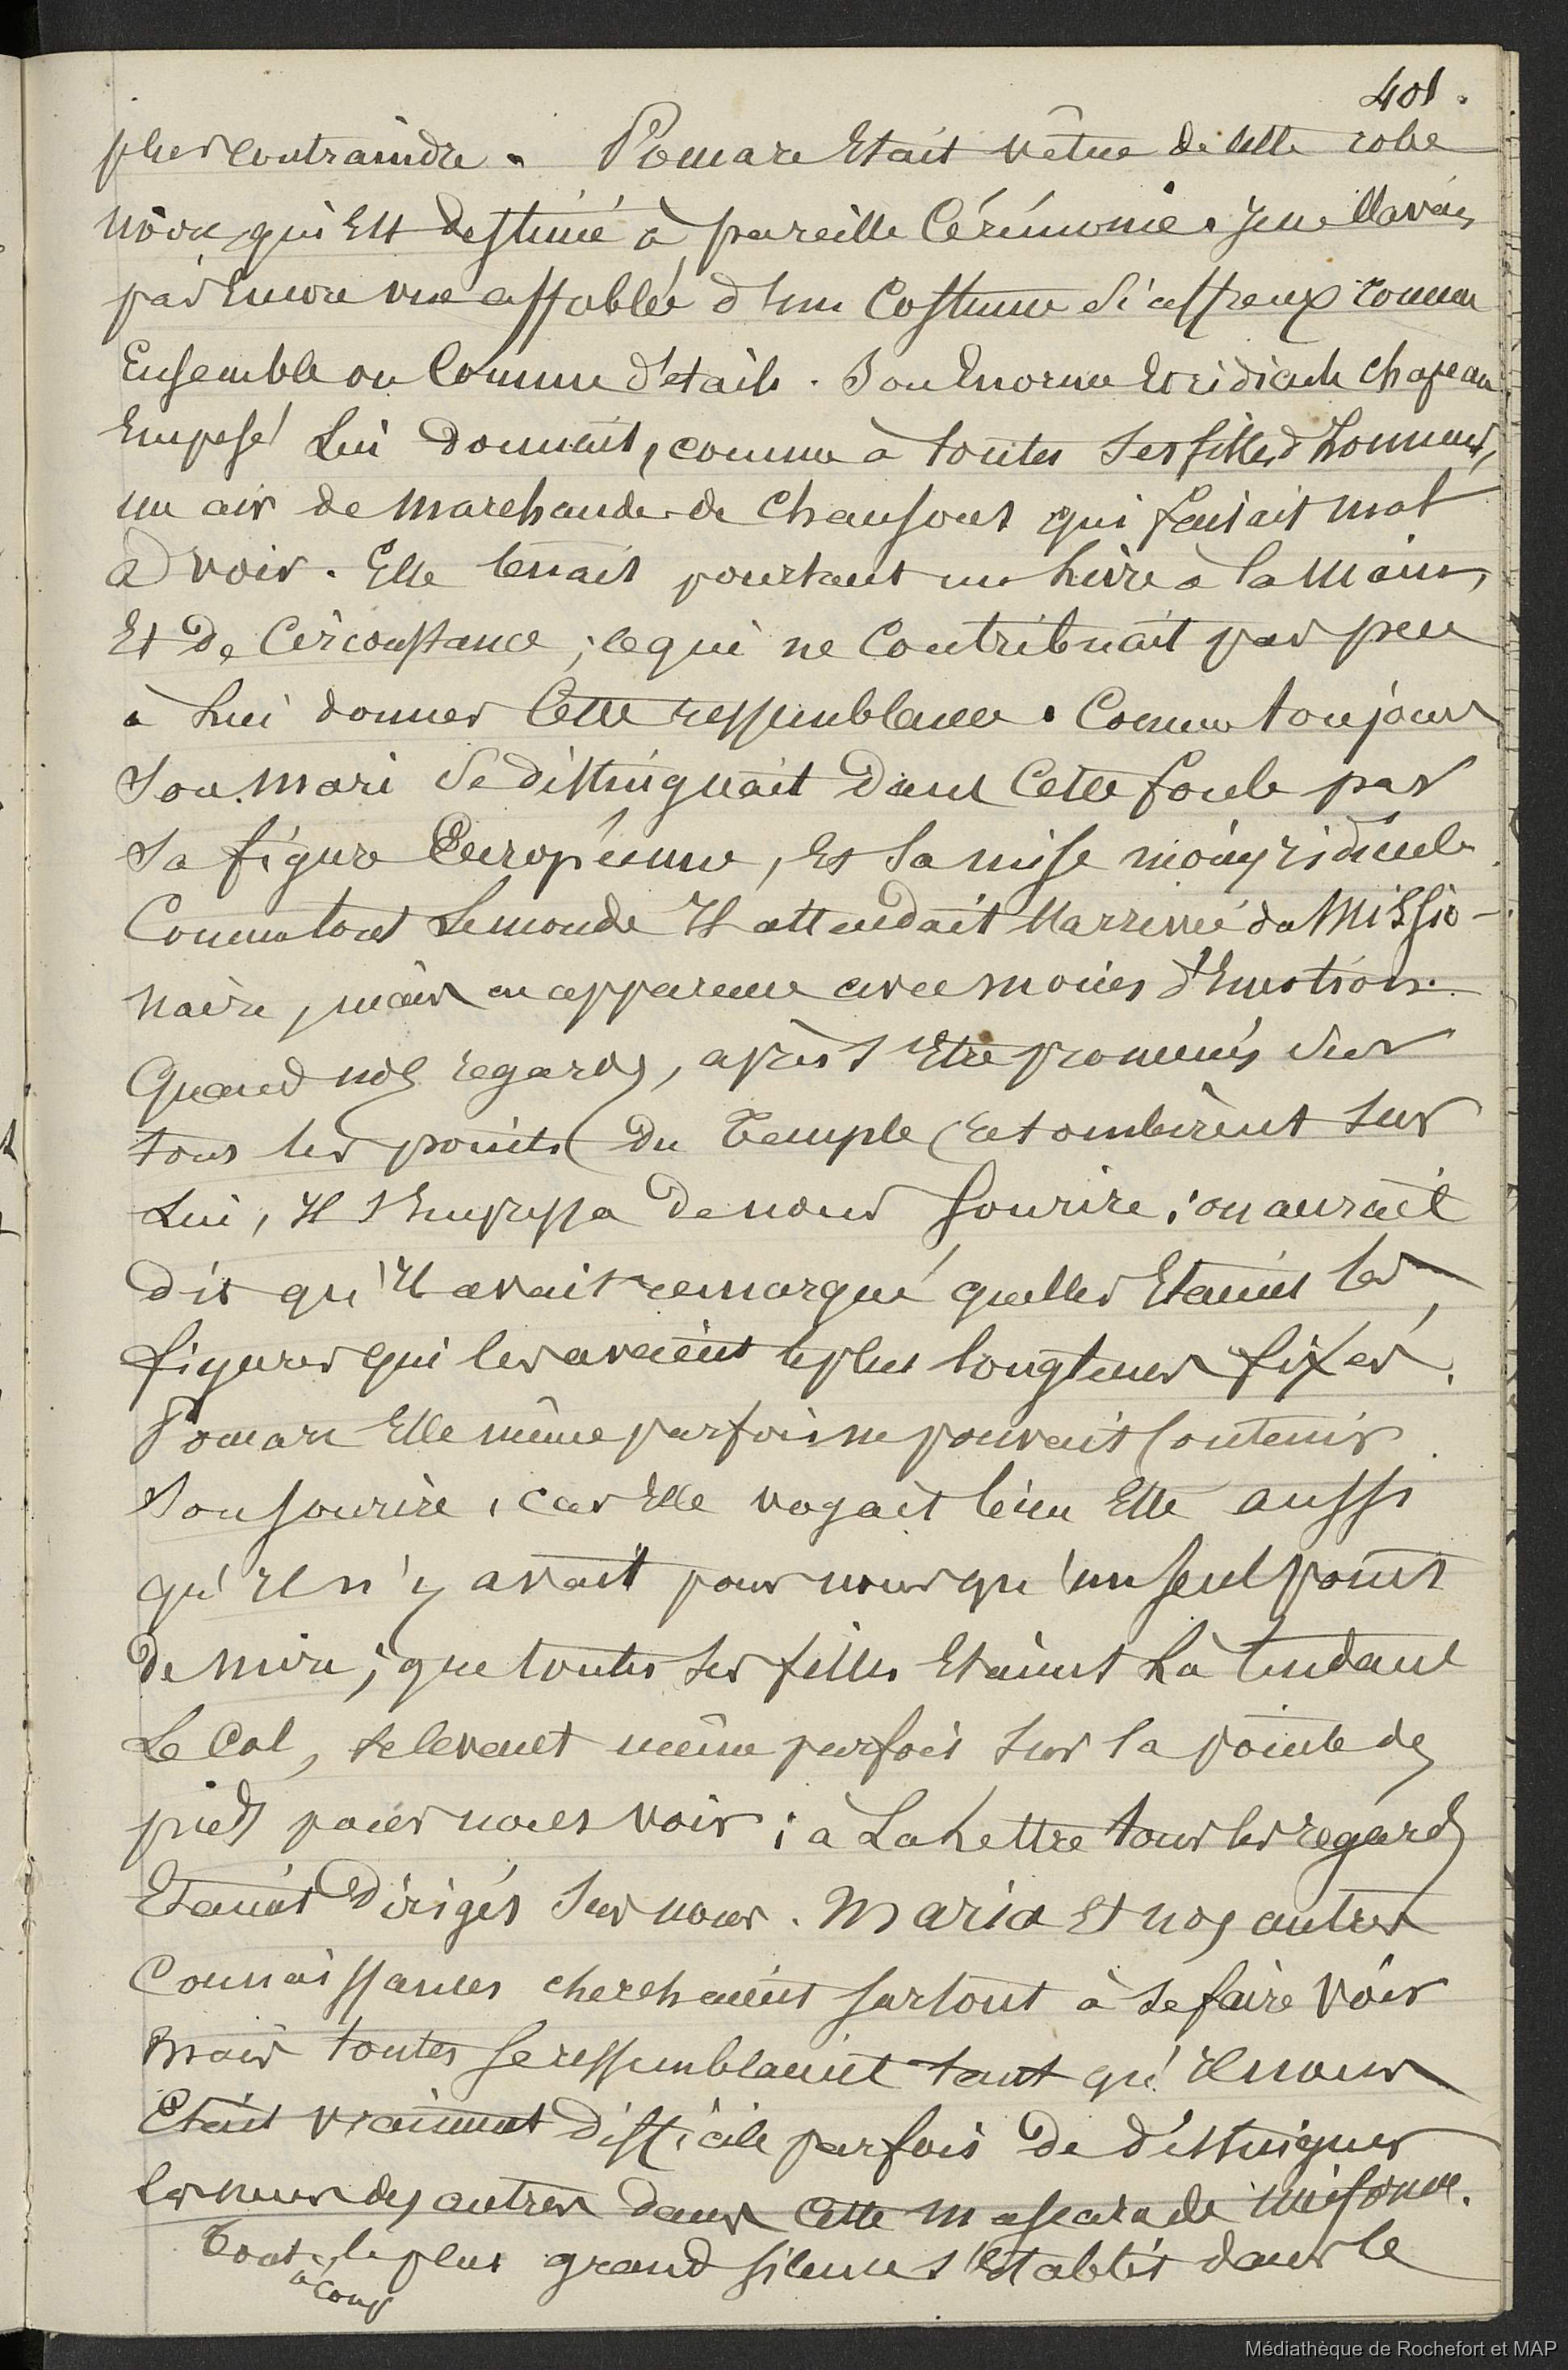 401.
plus contraindre. Pomare Etait vêtue de cette robe
noire qui Est destinée à pareille Cérémonie. Je ne l'avais
pas Encore vue affublée d'un Costume si affreux comme
Ensemble ou Comme détails. Son Enorme Et ridicule chapeau
Empesé Lui donnait, comme à toutes Ses filles d'honneur,
un air de Marchande de Chansons qui faisait mal
à voir. Elle tenait pourtant un Livre à la Main,
Et de Circonstance ; ce qui ne Contribuait pas peu
à Lui donner Cette ressemblance. Comme toujours
Son mari Se distinguait Dans Cette foule par
Sa figure Européenne, Et Sa mise moins ridicule
Comme tout Le monde Il attendait L'arrivée du Missio-
naire, mais en apparence avec moins d'Emotion.
Quand nos regards, après s'Etre promenés sur
tous les points du Temple retombèrent sur
Lui, Il s'Empressa de nous Sourire ; on aurait
dit qu'Il avait remarqué quelles Etaient les
figures qui les avaient le plus longtems fixés.
Pomare Elle même parfois ne pouvait Contenir
Son Sourire, car Elle voyait bien Elle aussi
qu'Il n'y avait pour nous qu'un Seul point
de mire ; que toutes Ses filles Etaient Là tendant
Le Col, se levant même parfois Sur la pointe des
pieds pour nous voir ; à La Lettre tous les regards
Etaient Dirigés Sur nous. Maria Et nos autres
Connaissances cherchaient surtout à se faire voir
mais toutes Se ressemblaient tant qu'Il nous
Etait vraiment difficile parfois de distinguer
les unes des autres dans Cette mascarade uniforme.
Tout à Coup le plus grand Silence s'Etablit dans le